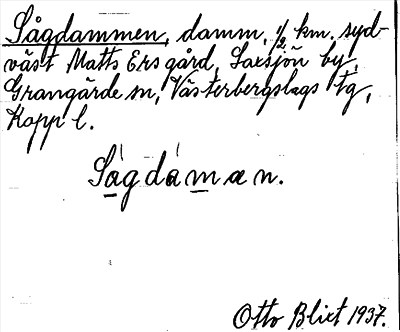 Sågdammen, damm, 1/2 km. syd-
väst Matts Ers gård, Saxsjön by,
Grangärde sn, Västerbergslags tg,
Kopp l.
Ságdámæn.
Otto Blixt 1937.